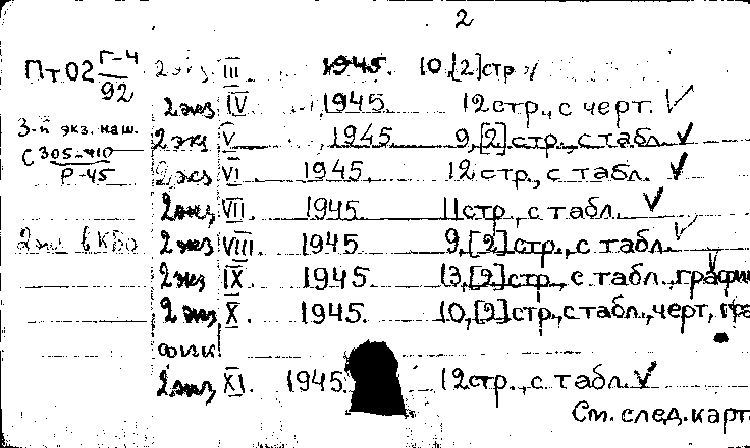 2
Пт02 Г-4/92
3-й экз. наш.
С 305-410/Р-45
2 экз в КБо
2 экз III 1945. 10,[2]стр
2 экз IV 1945. 12стр., с черт. ✓
2 экз V 1945. 9,[2]стр., с табл. ✓
2 экз VI. 1945. 12стр., с табл. ✓
2 экз VII. 1945. 11стр., с табл. ✓
2 экз VIII. 1945. 9,[2]стр., с табл. ✓
2 экз IX. 1945. 13,[2]стр., с табл., графи
2 экз X. 1945. 10,[2]стр., с табл., черт, гра
фик
2 экз XI. 1945. 12стр., с табл. ✓
См. след. карт.